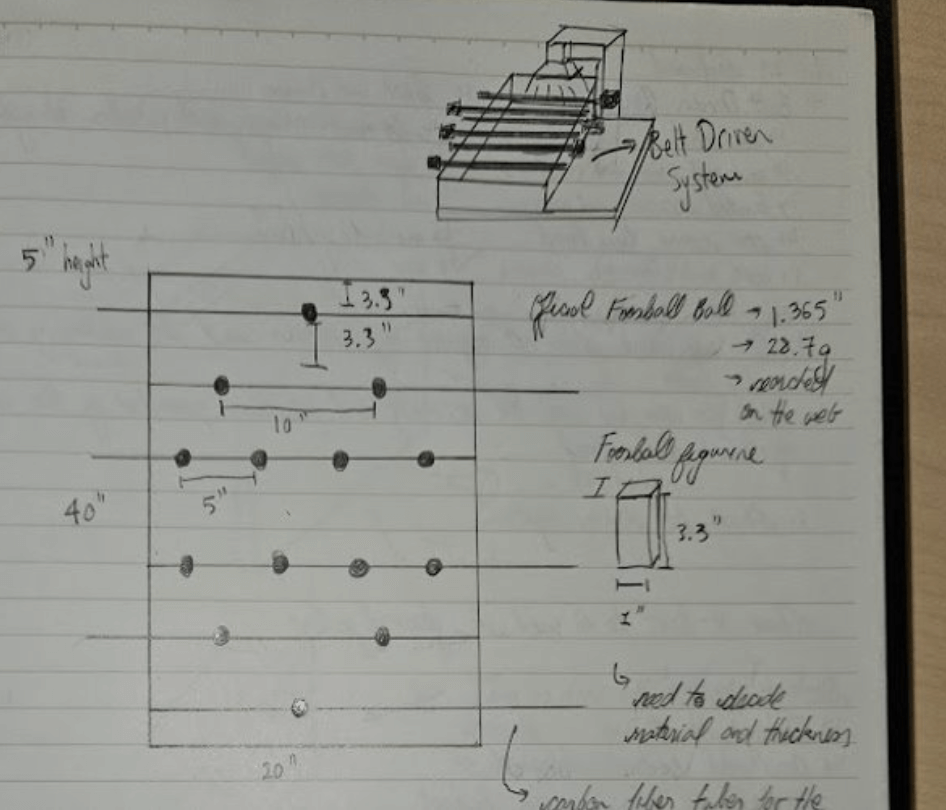 Belt Driven
System
5" height
3.3"
3.3"
Official Foosball Ball → 1.365"
→ 28.7g
→ recorded
on the web
10"
Foosball figurine
5"
40"
3.3"
1"
↳ need to decide
material and thickness
20"
↳ carbon fiber tubes for the